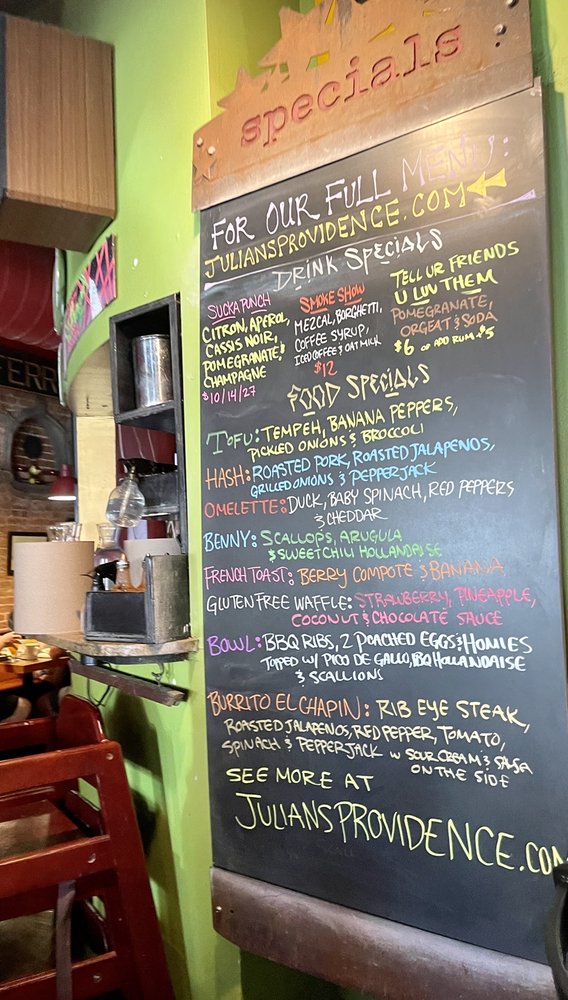 specials
FOR OUR FULL MENU:
JULIANSPROVIDENCE.COM
DRINK SPECIALS
SUCKA PUNCH
CITRON, APEROL,
CASSIS NOIR,
POMEGRANATE, &
CHAMPAGNE
$10/14/27
SMOKE SHOW
MEZCAL, BORGHETTI,
COFFEE SYRUP,
ICED COFFEE & OAT MILK
$12
TELL UR FRIENDS
U LUV THEM
POMEGRANATE,
ORGEAT & SODA
$6 OR ADD RUM + $5
FOOD SPECIALS
TOFU: TEMPEH, BANANA PEPPERS,
PICKLED ONIONS & BROCCOLI
HASH: ROASTED PORK, ROASTED JALAPENOS,
GRILLED ONIONS & PEPPERJACK
OMELETTE: DUCK, BABY SPINACH, RED PEPPERS
& CHEDDAR
BENNY: SCALLOPS, ARUGULA
& SWEET CHILI HOLLANDAISE
FRENCH TOAST: BERRY COMPOTE & BANANA
GLUTEN FREE WAFFLE: STRAWBERRY, PINEAPPLE,
COCONUT & CHOCOLATE SAUCE
BOWL: BBQ RIBS, 2 POACHED EGGS & HOMIES
TOPPED W/ PICO DE GALLO, BBQ HOLLANDAISE
& SCALLIONS
BURRITO EL CHAPIN: RIB EYE STEAK,
ROASTED JALAPENOS, RED PEPPER, TOMATO,
SPINACH & PEPPERJACK W SOUR CREAM & SALSA
ON THE SIDE
SEE MORE AT
JULIANSPROVIDENCE.COM